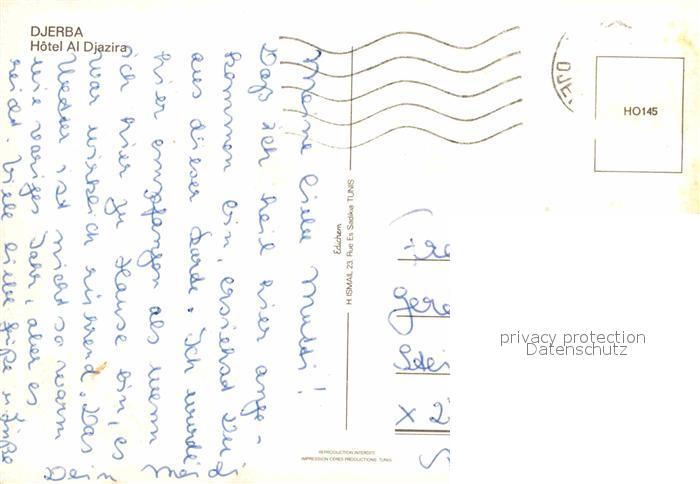 DJERBA
Hôtel Al Djazira
Meine liebe Mutti!
Daß ich heil hier ange-
kommen bin, ersiehst Du
aus dieser Karte. Ich wurde
hier empfangen als wenn
ich hier zu Hause bin, es
war wirklich rührend. Das
Wetter ist nicht so warm
wie voriges Jahr, aber es
reicht. Viele liebe Grüße u. Küße
Dein
Edichem
H. ISMAIL 23, Rue Es Sadikia TUNIS
REPRODUCTION INTERDITE
IMPRESSION CERES PRODUCTIONS TUNIS
HO145
DJE
Gere
Stei
X 2
privacy protection
Datenschutz